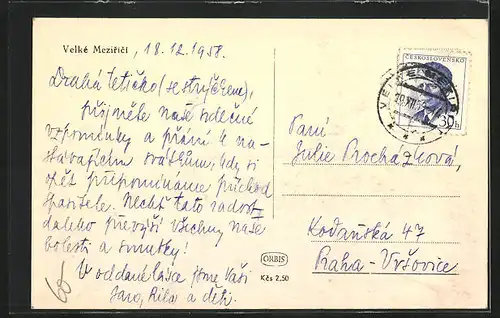 Velké Meziříčí, 18.12.1958.
Drahá tetičko (se strýčkem),
přijměte naše srdečné
vzpomínky a přání k na-
stávajícím svátkům, kdy si
opět připomínáme příchod
Spasitele. Nechť tato radost
daleko převýší všechny naše
bolesti a smutky!
V oddané lásce jsme Vaši
Jaro, Rila a děti.
60
ČESKOSLOVENSKO
30 h
Paní
Julie Procházková,
Kodaňská 47
Praha - Vršovice
ORBIS
Kčs 2,50